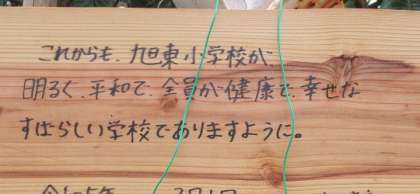 これからも、九日東小学校が
明るく、平和で、全員が健康で、幸せな
すばらしい学校でありますように。